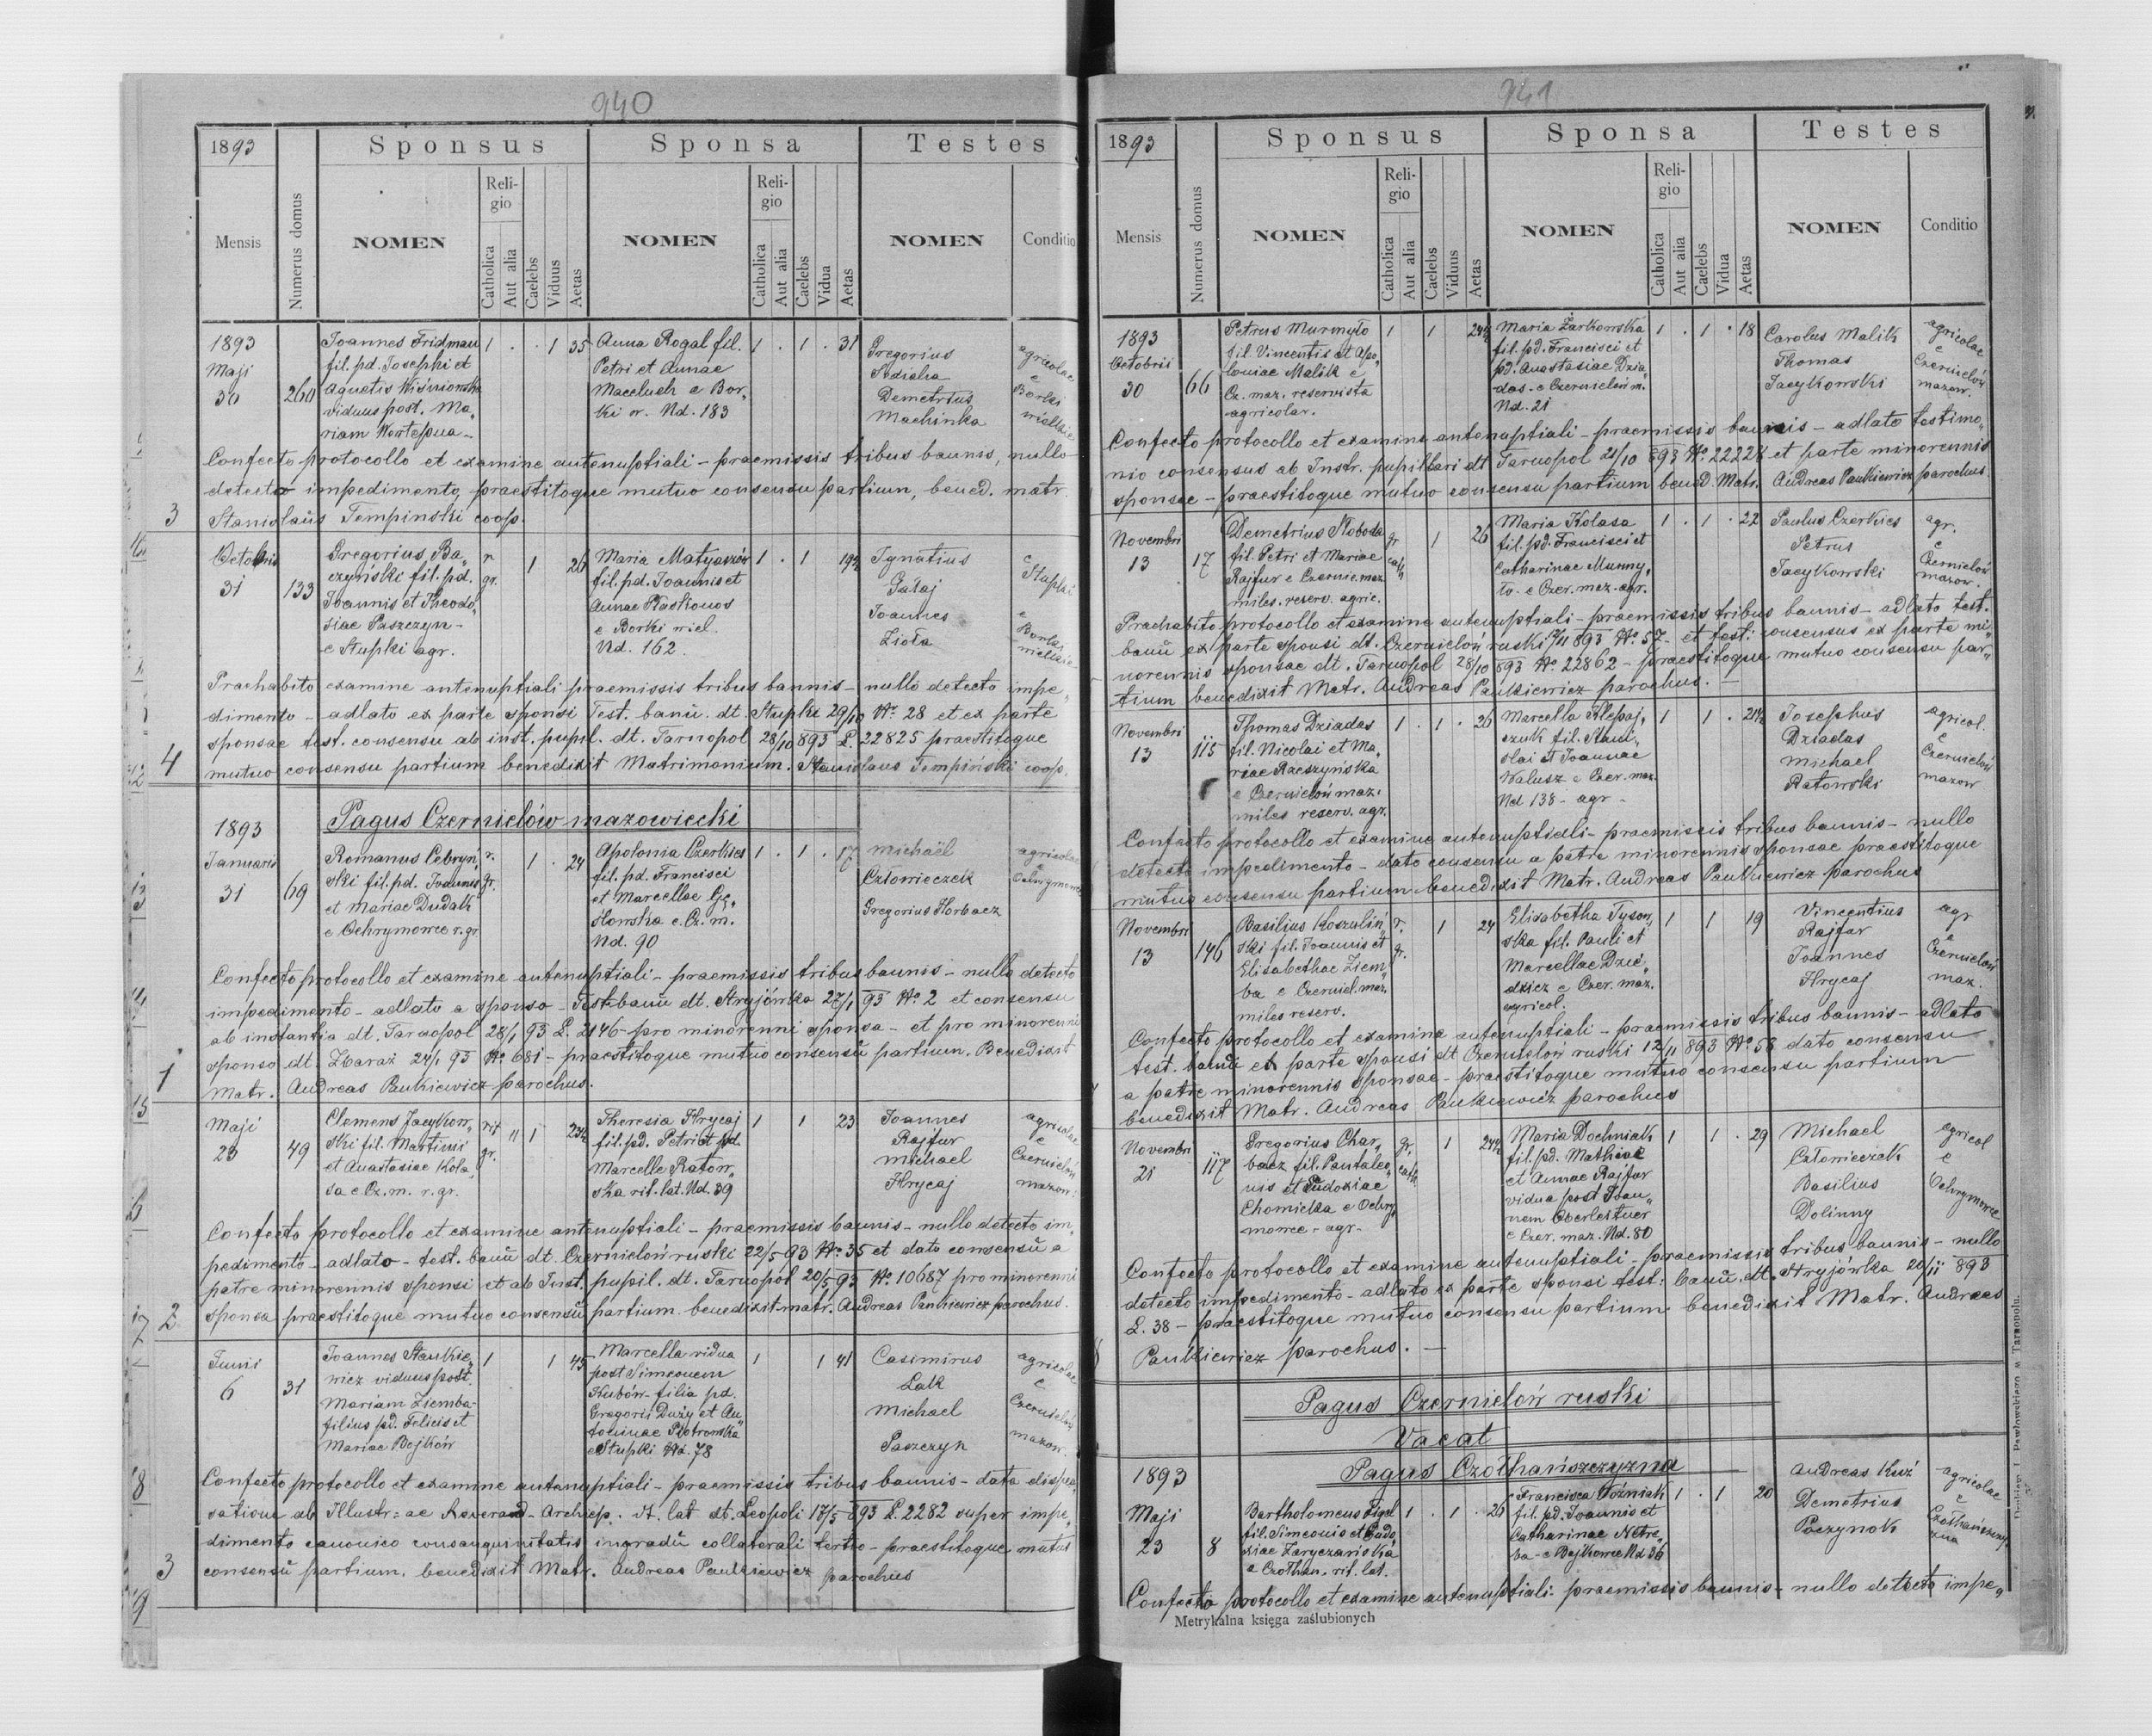 940
1893
Sponsus
Sponsa
Testes
Mensis
Numerus domus
NOMEN
Religio
Catholica
Aut alia
Caelebs
Viduus
Aetas
NOMEN
Religio
Catholica
Aut alia
Caelebs
Vidua
Aetas
NOMEN
Conditio
1893
Maji
30
260
Joannes Fridman
fil. pd. Josephi et
Agnetis Wiśniowska
viduus post. Ma„
riam Wortepua
1 . . 1 35
Anna Rogal fil.
Petri et Annae
Maceluch e Bor„
ki w. Nd. 183
1 . 1 . 31
Gregorius
Fedicha
Demetrius
Machinka
agricolae
e
Borki
wielkie
Confecto protocollo et examine antenuptiali – praemissis tribus bannis, nullo
detecto impedimento, praestitoque mutuo consensu partium, bened. matr.
3
Stanislaus Tempinski coop.
Octobris
31
133
Gregorius Ba„
czyński fil. pd.
Joannis et Theodo„
siae Paszczyn –
e Stupki agr.
r.
gr.
1 26
Maria Matyaszów
fil. pd. Joannis et
Annae Kaskonos
e Borki wiel.
Nd. 162.
1 . 1 19½
Ignatius
Gałaj
Joannes
Zioła
e
Stupki
e
Borki
wielkie
Praehabito examine antenuptiali praemissis tribus bannis – nullo detecto impe„
dimento – adlato ex parte sponsi Test. bann. dt. Stupki 29/10 No. 28 et ex parte
sponsae test. consensu ab inst. pupil. dt. Tarnopol 28/10 893 L. 22825 praestitoque
4
mutuo consensu partium benedixit Matrimonium. Stanislaus Tempiński coop.
Pagus Czernielów mazowiecki
1893
Januaris
31
69
Romanus Cebryń„
ski fil. pd. Joannis
et Mariae Dudak
e Ochrymowce r. gr
r.
gr.
1 . 24
Apolonia Czerkies
fil. pd. Francisci
et Marcellae Gę„
słowska e Cz. m.
Nd. 90
1 . 1 . 17
Michaël
Człowieczek
Gregorius Horbacz
agricolae
e
Ochrymowce
Confecto protocollo et examine antenuptiali – praemissis tribus bannis – nullo detecto
impedimento – adlato a sponso – Test. bann dt. Stryjówka 27/1 93 No. 2 et consensu
ab instantia dt. Tarnopol 28/1 93 L. 2146 – pro minorenni sponsa – et pro minorenni
sponso dt. Zbaraż 24/1 93 No. 681 – praestitoque mutuo consensu partium. Benedixit
1
Matr. Andreas Paukiewicz parochus.
Maji
23
49
Clemens Jacykow„
ski fil. Martini
et Anastasiae Kola„
sa e Cz. m. r. gr.
rit
gr.
" 1 23½
Theresia Hrycaj
fil. pd. Petri et pd.
Marcelle Ratow„
ska rit. lat. Nd. 39
1 1 23
Joannes
Rajfur
Michael
Hrycaj
agricolae
e
Czernielów
mazow.
Confecto protocollo et examine antenuptiali – praemissis bannis – nullo detecto im„
pedimento – adlato – test. bann dt. Czernielów ruski 22/5 93 No. 35 et dato consensu a
patre minorennis sponsi et ab Inst. pupil. dt. Tarnopol 20/5 93 No. 10687 pro minorenni
2
sponsa praestitoque mutuo consensu partium benedixit matr. Andreas Paukiewicz parochus.
Junii
6
31
Joannes Stankie„
wicz viduus post.
Mariam Ziemba –
filius pd. Felicis et
Mariae Bojków
1 1 45
Marcella vidua
post Simeonem
Kubów – filia pd.
Gregorii Duży et An„
toninae Piotrowska
e Stupki Nd. 78
1 1 41
Casimirus
Lak
Michael
Paszczyn
agricolae
e
Czernielów
mazow.
Confecto protocollo et examine antenuptiali – praemissis tribus bannis – data dispen„
satione ab Illustr: ac Reverend. Archiep. rit. lat dt. Leopoli 17/5 893 L. 2282 super impe„
dimento canonico consanguinitatis in gradu collaterali tertio – praestitoque mutuo
3
consensu partium, benedixit Matr. Andreas Paukiewicz parochus
941
1893
Sponsus
Sponsa
Testes
Mensis
Numerus domus
NOMEN
Religio
Catholica
Aut alia
Caelebs
Viduus
Aetas
NOMEN
Religio
Catholica
Aut alia
Caelebs
Vidua
Aetas
NOMEN
Conditio
1893
Octobris
30
66
Petrus Murmyło
fil Vincentis et Apo„
loniae Malik e
Cz. maz. reservista
agricolar.
1 1 24½
Maria Żarkowska
fil. pd. Francisci et
pd. Anastasiae Dzia„
das – e Czernielów m.
Nd. 21
1 . 1 . 18
Carolus Malik
Thomas
Jacykowski
agricolae
e
Czernielów
mazow.
Confecto protocollo et examine antenuptiali – praemissis bannis – adlato testimo„
nio consensus ab Instr. pupillari dt Tarnopol 21/10 893 No. 22228 et parte minorennis
sponsae – praestitoque mutuo consensu partium bened. Matr. Andreas Paukiewicz parochus.
Novembri
13
17
Demetrius Słoboda
fil. Petri et Mariae
Rajfur e Czernie. maz.
miles. reserv. agric.
gr
cath
1 26
Maria Kolasa
fil. pd. Francisci et
Catharinae Murmy„
ło – e Czer. maz. agr.
1 . 1 . 22
Paulus Czerkies
Petrus
Jacykowski
agr.
e
Czernielów
mazow.
Praehabito protocollo et examine antenuptiali – praemissis tribus bannis – adlato test.
bann ex parte sponsi dt. Czernielów ruski 12/11 893 No. 57 – et test: consensus ex parte mi„
norennis sponsae dt. Tarnopol 28/10 893 No 22862 – praestitoque mutuo consensu par„
tium benedixit Matr. Andreas Paukiewicz parochus. –
Novembri
13
115
Thomas Dziadas
fil. Nicolai et Ma„
riae Rzeszyńska
e Czernielów maz.
miles reserv. agr.
1 . 1 . 26
Marcella Ślepaj„
czuk fil. Stani„
slai et Joannae
Walusz e Czer. maz.
Nd 138 – agr –
1 1 . 21½
Josephus
Dziadas
Michael
Ratowski
agricol.
e
Czernielów
mazow
Confecto protocollo et examine antenuptiali – praemissis tribus bannis – nullo
detecto impedimento – dato consensu a patre minorennis sponsae praestitoque
mutuo consensu partium benedixit Matr. Andreas Paukiewicz parochus
Novembri
13
146
Basilius Koszuliń„
ski fil. Joannis et
Elisabethae Ziem„
ba e Czerniel. maz.
miles reserv.
r.
gr.
1 24
Elisabetha Tysow„
ska fil. Pauli et
Marcellae Dzie„
dzicz e Czer. maz.
agricol.
1 1 19
Vincentius
Rajfur
Joannes
Hrycaj
agr
e
Czernielów
maz.
Confecto protocollo et examine antenuptiali – praemissis tribus bannis – adlato
test. banni ex parte sponsi dt Czernielów ruski 12/11 893 No. 58 dato consensu
a patre minorennis sponsae – praestitoque mutuo consensu partium
benedixit Matr. Andreas Paukiewicz parochus
Novembri
21
117
Gregorius Char„
bacz fil. Pantaleo„
nis et Eudoxiae
Chomicka e Ochry„
mowce – agr –
gr.
cath.
1 24½
Maria Dochniak
fil. pd. Mathiae
et Annae Rajfur
vidua post Joan„
nem Oberlestner
e Czer. maz. Nd. 80
1 1 . 29
Michael
Człowieczak
Basilius
Dolinny
agricol
e
Ochrymowce
Confecto protocollo et examine antenuptiali – praemissis tribus bannis – nullo
detecto impedimento – adlato ex parte sponsi test: bann. dt. Stryjówka 20/11 893
L. 38 – praestitoque mutuo consensu partium benedixit Matr. Andreas
Paukiewicz parochus. –
Pagus Czernielów ruski
Vacat
Pagus Czołhańszczyzna
1893
Maji
23
8
Bartholomeus Figel
fil. Simeonis et Eudo„
xiae Zaryczańska
e Czołhan. rit. lat.
1 . 1 . 26
Francisca Woźniak
fil. pd. Joannis et
Catharinae Notre„
ba – e Bajkowce Nd 36
1 . 1 20
Andreas Kuź
Demetrius
Poczynok
agricolae
e
Czołhańszczy„
zna
Confecto protocollo et examine antenuptiali: praemissis bannis – nullo detecto impe„
Metrykalna księga zaślubionych
Drukiem J. Pawłowskiego w Tarnopolu.